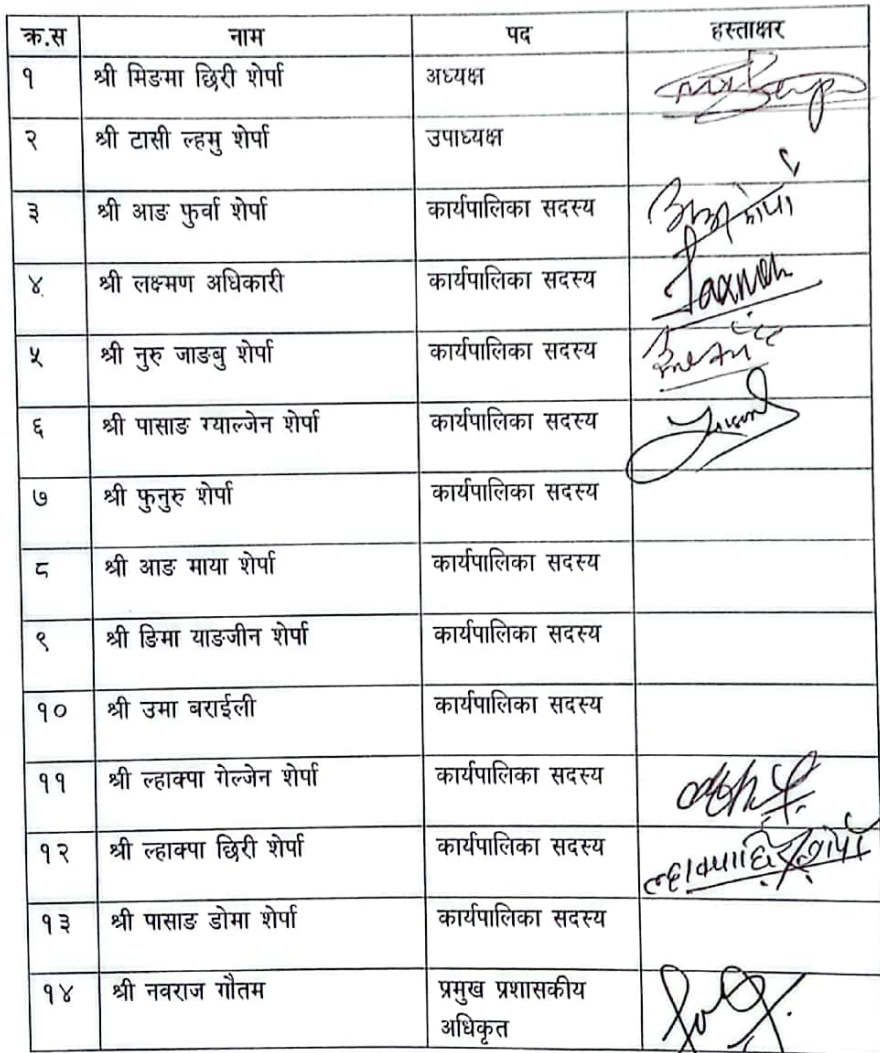 क्र.स नाम पद हस्ताक्षर
१ श्री मिङमा छिरी शेर्पा अध्यक्ष
२ श्री टासी ल्हमु शेर्पा उपाध्यक्ष
३ श्री आङ फुर्वा शेर्पा कार्यपालिका सदस्य
४ श्री लक्ष्मण अधिकारी कार्यपालिका सदस्य Laxman
५ श्री नुरु जाङबु शेर्पा कार्यपालिका सदस्य
६ श्री पासाङ ग्याल्जेन शेर्पा कार्यपालिका सदस्य
७ श्री फुनुरु शेर्पा कार्यपालिका सदस्य
८ श्री आङ माया शेर्पा कार्यपालिका सदस्य
९ श्री ङिमा याङजीन शेर्पा कार्यपालिका सदस्य
१० श्री उमा बराईली कार्यपालिका सदस्य
११ श्री ल्हाक्पा गेल्जेन शेर्पा कार्यपालिका सदस्य
१२ श्री ल्हाक्पा छिरी शेर्पा कार्यपालिका सदस्य ल्हाक्पा छिरी शेर्पा
१३ श्री पासाङ डोमा शेर्पा कार्यपालिका सदस्य
१४ श्री नवराज गौतम प्रमुख प्रशासकीय
अधिकृत